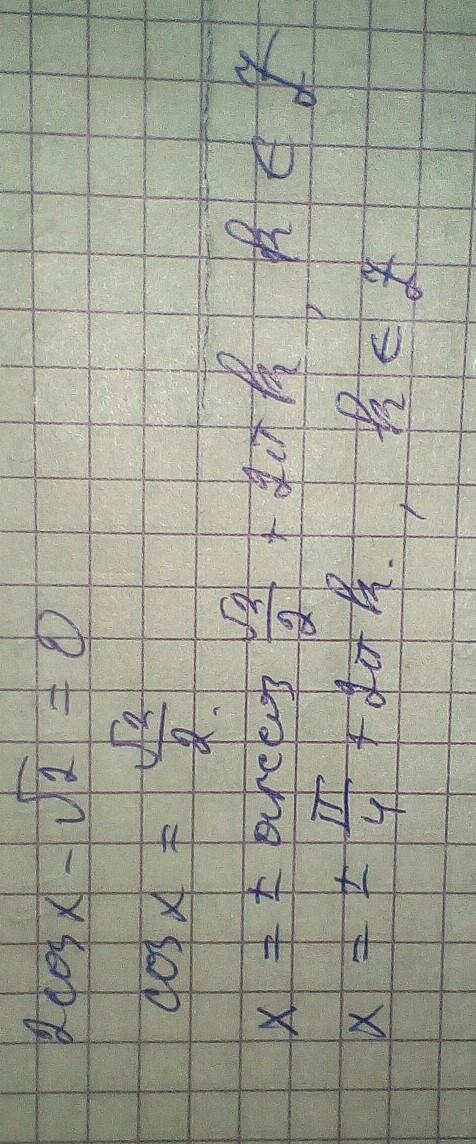 2cos x - √2 = 0
cos x = √2/2.
x = ± arccos √2/2 + 2π k, k ∈ Z
x = ± π/4 + 2π k., k ∈ Z